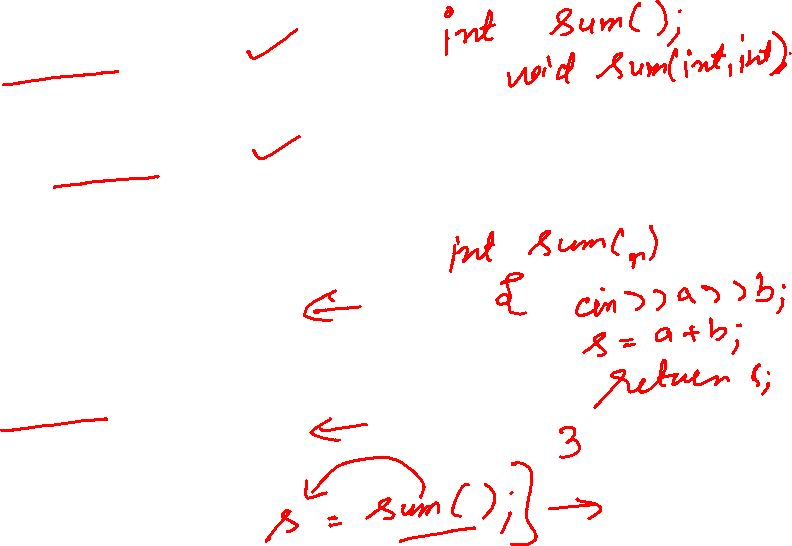 int sum();
void sum(int,int);
int sum( )
{ cin>>a>>b;
s = a+b;
return s;
3
s = sum();} →